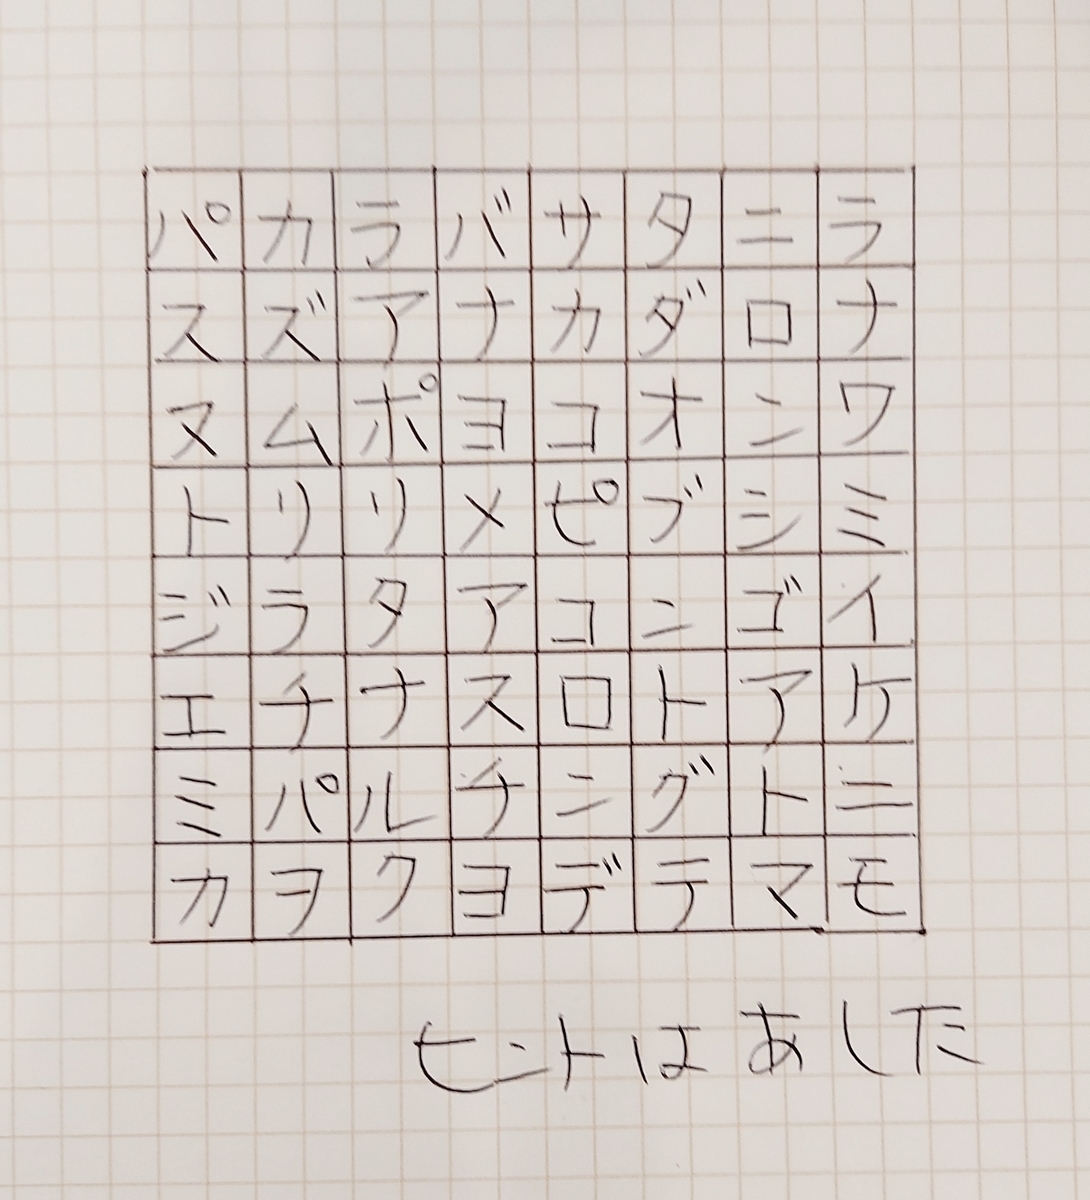 パカラバサタニラ
スズアナカダロナ
ヌムポヨコオンワ
トリリメピブシミ
ジラタアコンゴイ
エチナスロトアケ
ミパルチングトニ
カヲクヨデテマモ
ヒントはあした